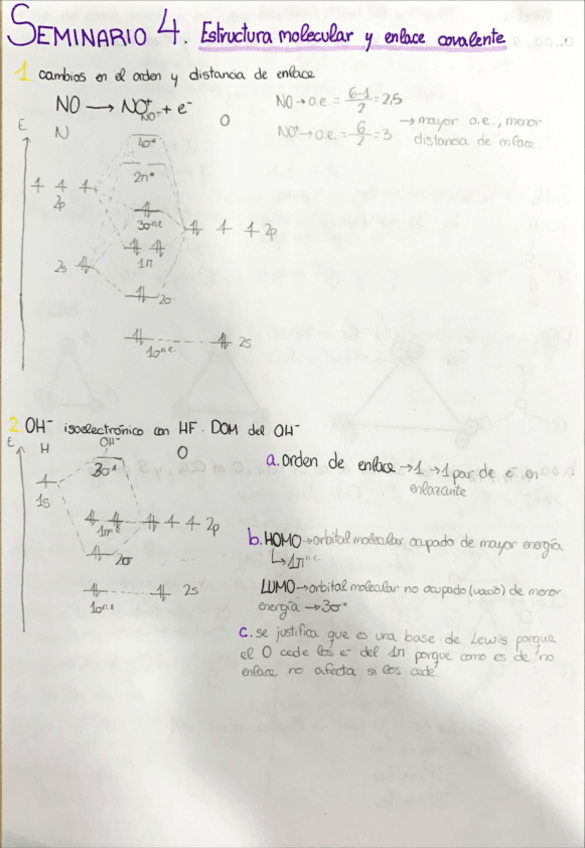 SEMINARIO 4. Estructura molecular y enlace covalente
1. cambios en el orden y distancia de enlace
NO → NO⁺ + e⁻
NO⁺
NO → o.e = 6-1/2 = 2,5
NO⁺ → o.e = 6/2 = 3 → mayor o.e., menor
distancia de enlace.
E
N
O
4σ*
2π*
2p
3σⁿᵉ
2p
1π
2s
2σ
1σⁿ·ᵉ·
2s
2. OH⁻ isoelectrónico con HF. DOM del OH⁻
E
H
OH⁻
O
3σ*
1s
1πⁿᵉ
2p
2σ
1σⁿᵉ
2s
a. orden de enlace → 1 → 1 par de e⁻ en
enlazante
b. HOMO → orbital molecular ocupado de mayor energía
↳ 1πⁿ·ᵉ·
LUMO → orbital molecular no ocupado (vacío) de menor
energía → 3σ*
c. se justifica que es una base de Lewis porque
el O cede los e⁻ del 1π porque como es de no
enlace no afecta si los cede.